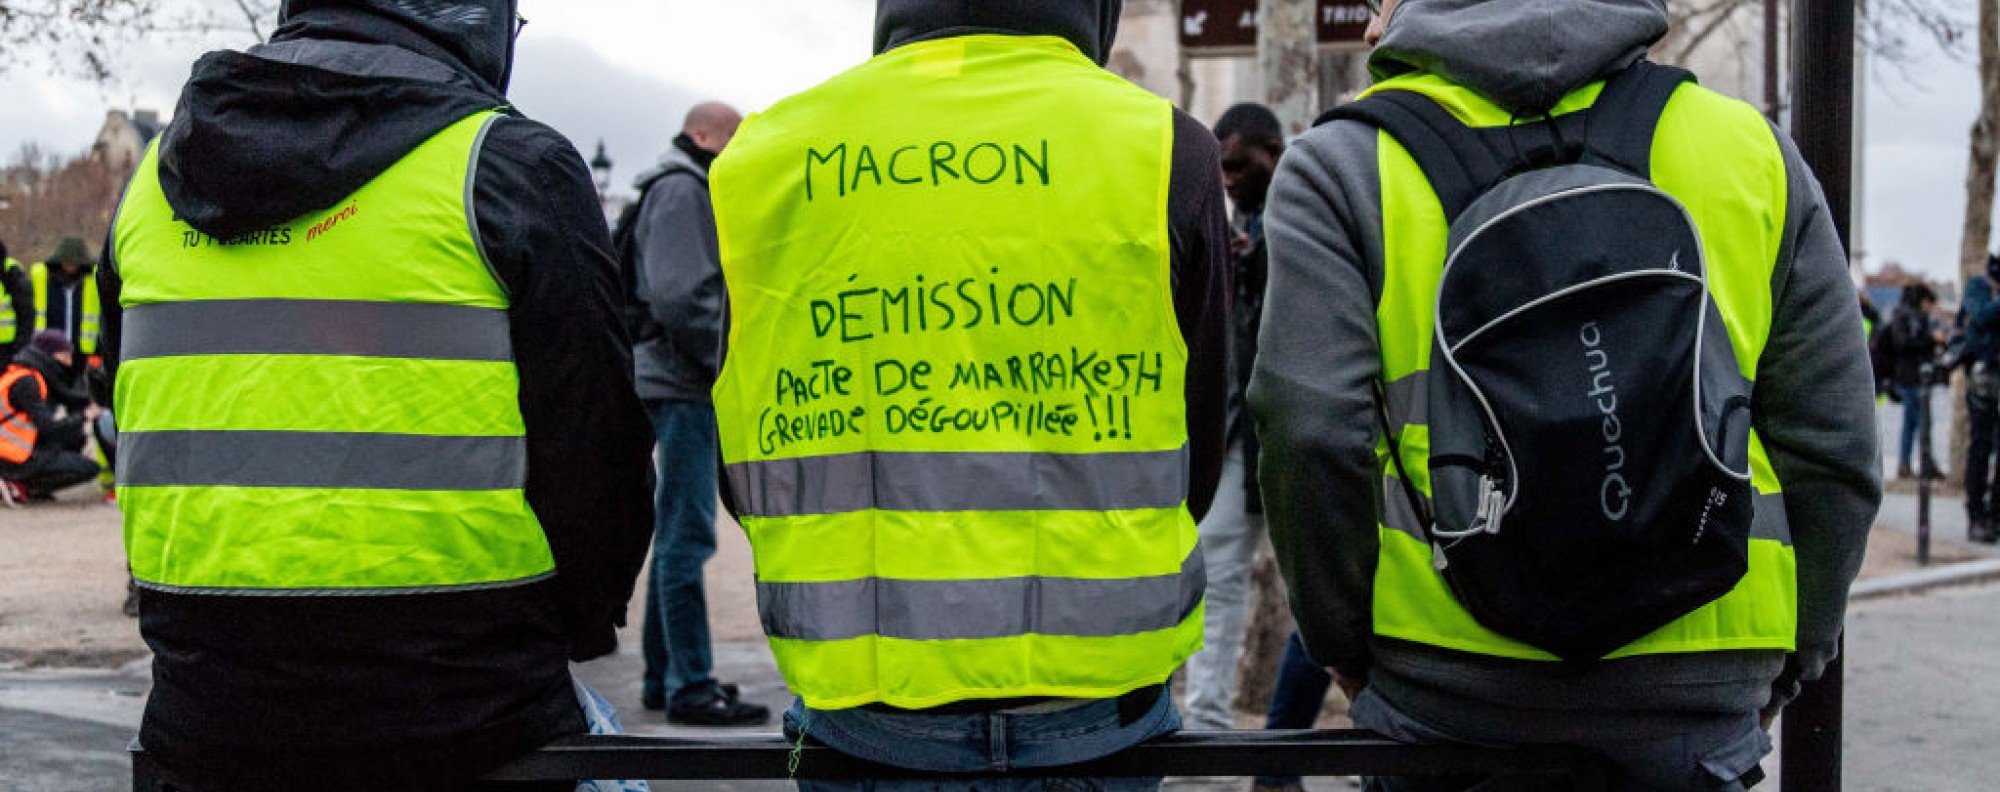 TU T'ÉCARTES merci
MACRON
DÉMISSION
PACTE DE MARRAKESH
GRENADE DÉGOUPILLÉE !!!
Quechua